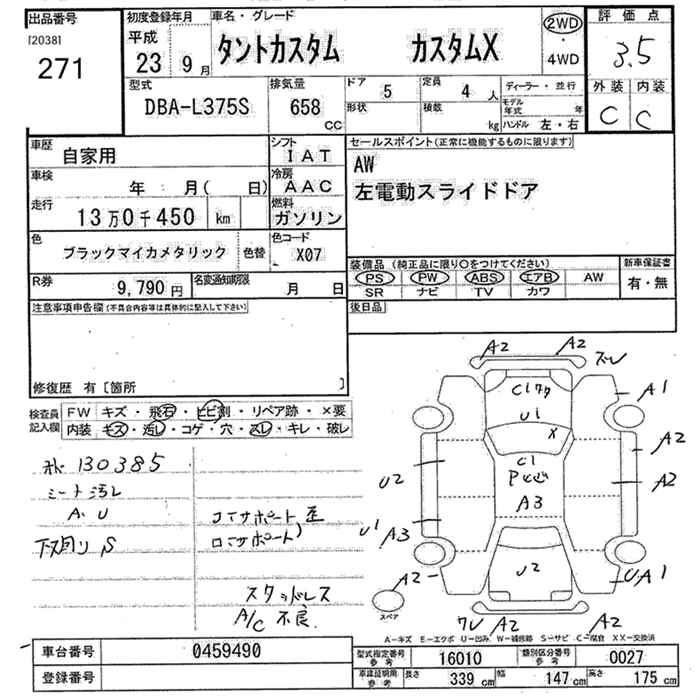 出品番号
[2038]
271
初度登録年月
平成
23 9月
車名・グレード
タントカスタム カスタムX
2WD
・
4WD
評価点
3.5
型式
DBA-L375S
排気量
658
CC
ドア
5
定員
4人
形状
積載
kg
ディーラー・並行
モデル年式 年
ハンドル 左・右
外装 内装
C C
車歴
自家用
シフト
IAT
セールスポイント(正常に機能するものに限ります)
AW
左電動スライドドア
車検
年 月( 日)
冷房
AAC
走行
13万0千450 km
燃料
ガソリン
色
ブラックマイカメタリック
色替
色コード
X07
装備品(純正品に限り〇をつけてください)
PS PW ABS エアB AW
SR ナビ TV カワ
新車保証書
有・無
R券
9,790円
名変通知期限
月 日
後日品
注意事項申告欄(不具合内容等は具体的に記入して下さい)
修復歴 有〔箇所 〕
検査員記入欄
FW キズ・飛石・ヒビ割・リペア跡・×要
内装 キズ・汚レ・コゲ・穴・スレ・キレ・破レ
130385
シート汚レ
A. U
下回り S
コアサポート歪
ロアサポート)
スタッドレス
A/C 不良
A2 A2
ズレ
C1ワク
A1
U1
X
A2
C1
U2
A2
A3
U1 A3
A2
U2
UA1
スペア
ワレ A2 A2
A-キズ E-エクボ U-凹み W-補修跡 S-サビ C-腐食 XX-交換済
車台番号
0459490
登録番号
型式指定番号
参考
16010
類別区分番号
参考
0027
車庫証明用
参考
長さ 339cm 幅 147cm 高さ 175cm